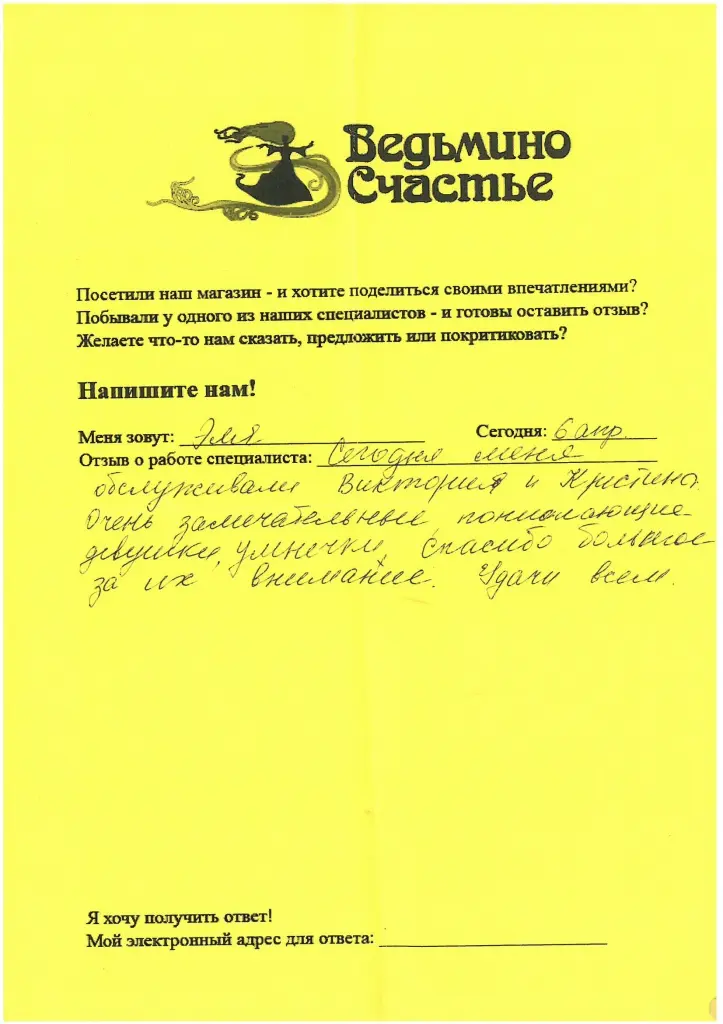 Ведьмино
Счастье
Посетили наш магазин - и хотите поделиться своими впечатлениями?
Побывали у одного из наших специалистов - и готовы оставить отзыв?
Желаете что-то нам сказать, предложить или покритиковать?
Напишите нам!
Меня зовут: Эля Сегодня: 6 апр.
Отзыв о работе специалиста: Сегодня меня
обслуживали Виктория и Кристина
Очень замечательные, понимающие
девушки, умнички, спасибо большое
за их внимание. Удачи всем.
Я хочу получить ответ!
Мой электронный адрес для ответа: